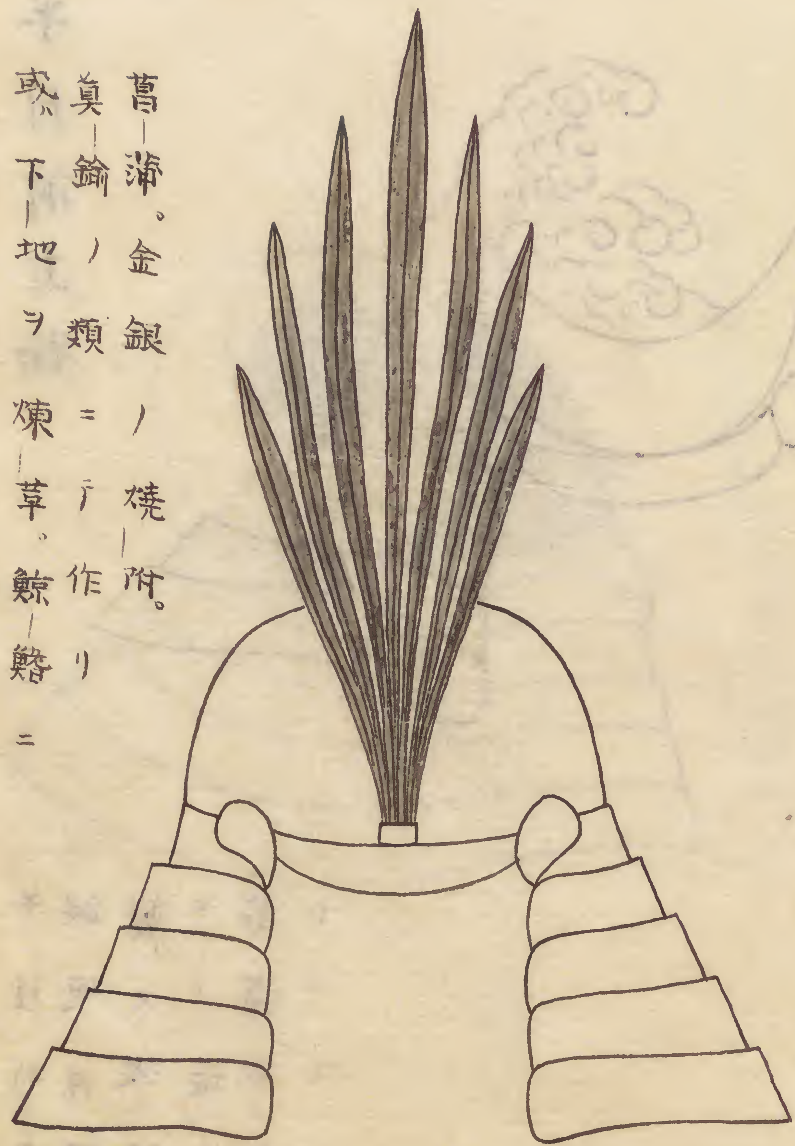 菖―蒲。金銀ノ燒―附。
眞―鍮ノ類ニテ作リ
或ハ下―地ヲ煉―草。鯨―鰭ニ